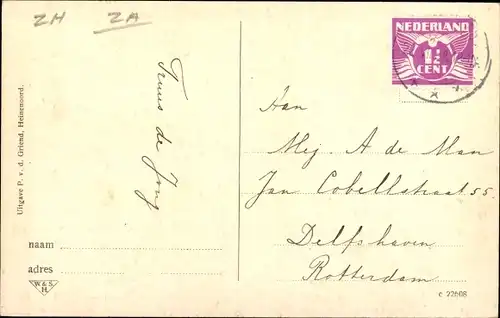 ZH ZA
NEDERLAND
1½
CENT
Uitgave P. v. d. Griend, Heinenoord.
Truus de Jong
Aan
Mej. A de Man
Jan Cobellstraat 55
Delfshaven
Rotterdam
naam
adres
W & S
H
c 22608